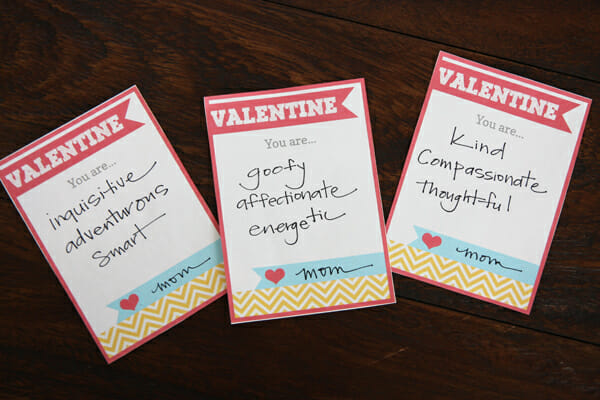 VALENTINE
You are...
inquisitive
adventurous
smart
mom
VALENTINE
You are...
goofy
affectionate
energetic
mom
VALENTINE
You are...
Kind
Compassionate
thoughtful
mom